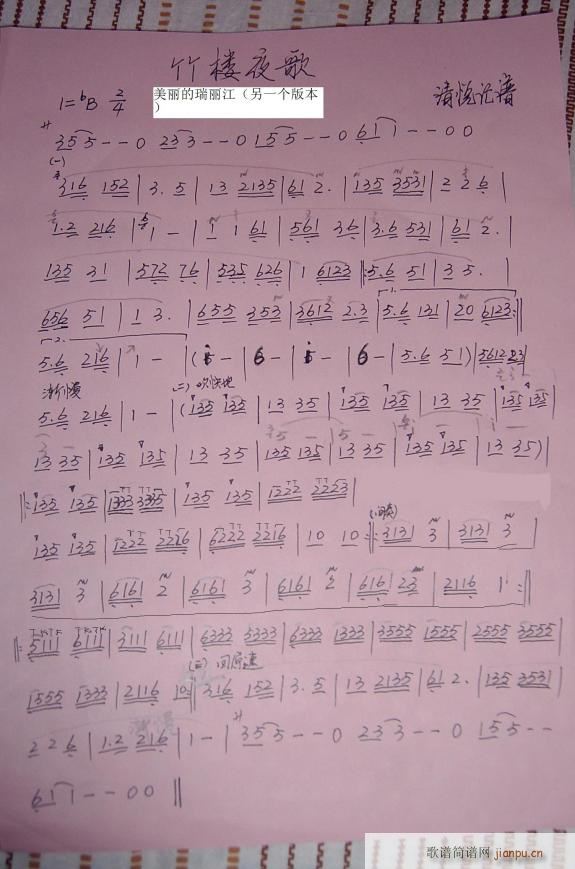 竹楼夜歌
1=bB 2/4
美丽的瑞丽江（另一个版本
）
清悦记谱
サ
355--0 233--0 155--0 611--00
(一)
316 152 | 3. 5 | 13 2135 | 61 2. | 135 3531 | 2 2 6 |
1.2 216 | 1 - | 1 1 61 | 561 36 | 3.6 531 | 61 2. |
135 31 | 572 76 | 535 626 | 1 6123 |: 5.6 51 | 3 5. |
656 51 | 1 3. | 655 353 | 3612 2.3 | 5.6 131 | 20 6123 :|
5.6 216 | 1 - | (5 - | 6 - | 5 - | 6 - | 5.6 51) | 5612 23 |
渐慢 (二) 欢快地
5.6 216 | 1 - | (135 135 | 13 35 | 135 135 | 13 35 | 135 135 |
13 35 | 135 135 | 13 35 | 135 135 | 13 35 | 135 135 | 13 35) |
|: 135 135 | 1333 3335 | 135 135 | 1222 2223 |
135 135 | 1222 2216 | 6222 2216 | 10 10 :|: 3131 3 | 3131 3 |
3131 3 | 6161 2 | 6161 3 | 6161 2 | 6161 23 | 2116 1 :|
|: 5111 6111 | 3111 6111 | 6333 5333 | 6333 1333 | 3555 1555 | 2555 3555 |
(三) 回原速
1555 1333 | 2116 10 :| 316 152 | 3. 5 | 13 2135 | 61 2. | 135 3531 |
2 2 6 | 1.2 216 | 1 - | サ 355--0 233--0 155--
611--00 ||
歌谱简谱网
jianpu.cn